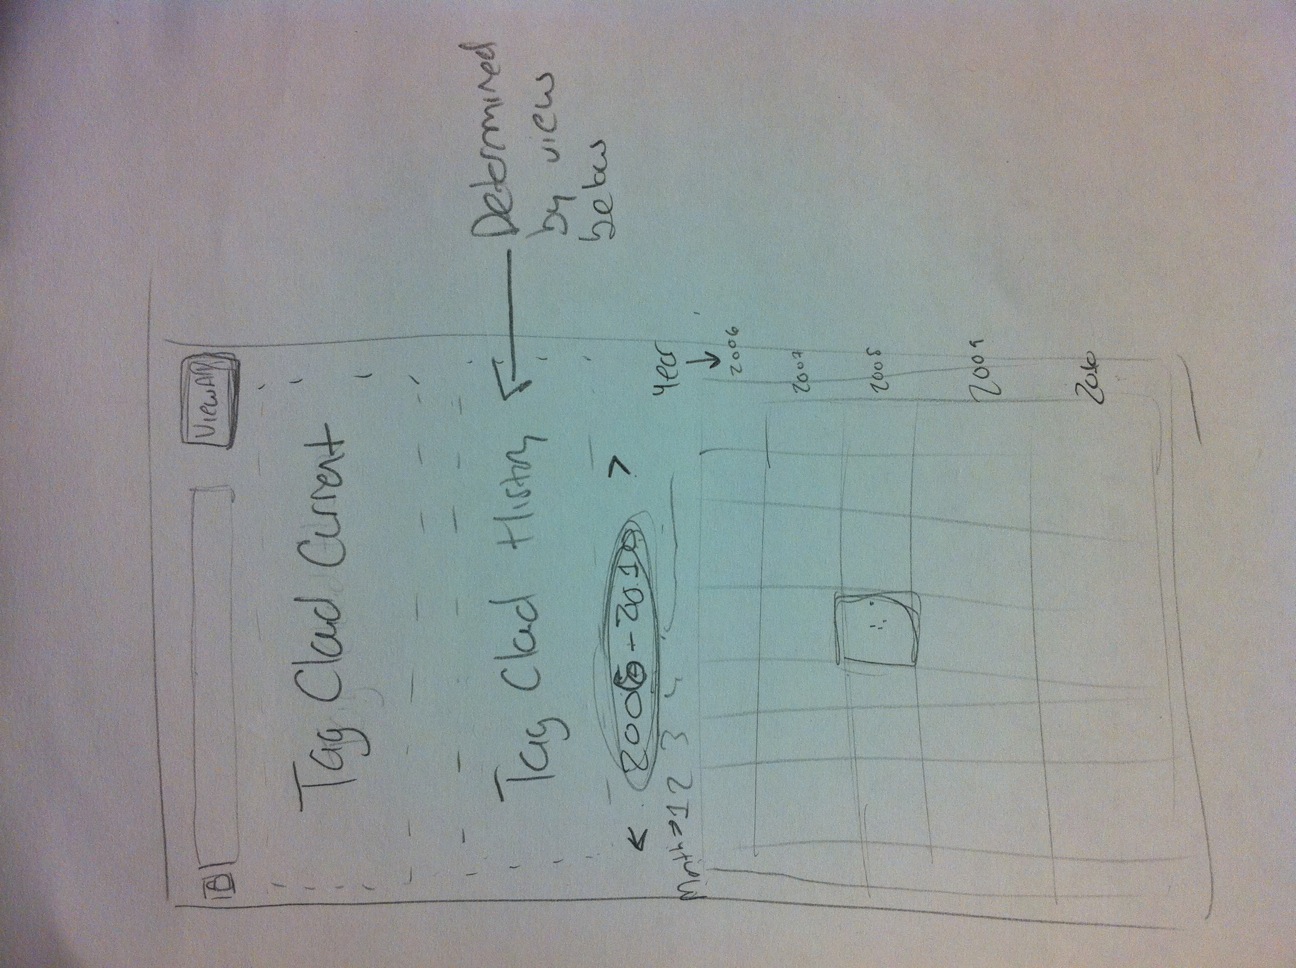 View All
Tag Cloud Current
Tag Cloud History
Determined
by view
below
< 2006-2010 >
Month → 1 2 3 4
Year
2006
2007
2008
2009
2010